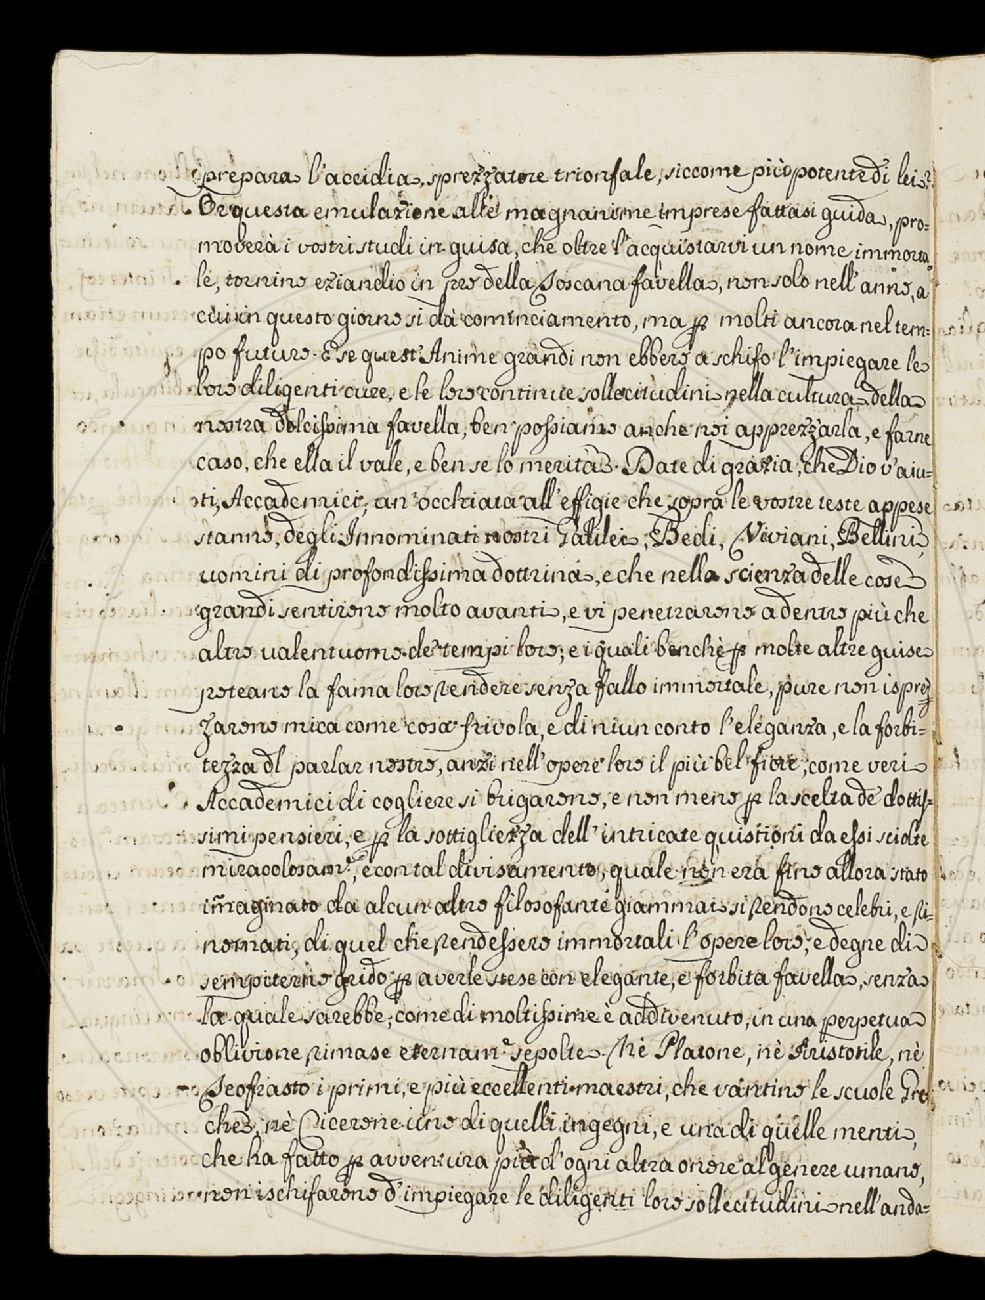 prepara l'accidia, sprezzatore trionfale, siccome più potente di lei.
Or questa emulazione alle magnanime imprese fattasi guida, pro=
moverà i vostri studi in guisa, che oltre l'acquistarvi un nome immorta
le, tornino eziandio in pro della Toscana favella, non solo nell'anno, a
cui in questo giorno si dà cominciamento, ma ꝑ molti ancora nel tem=
po futuro. E se quest'Anime grandi non ebbero a schifo l'impiegare le
loro diligenti cure, e le loro continue sollecitudini nella cultura della
nostra dolcissima favella, ben possiamo anche noi apprezzarla, e farne
caso, che ella il vale, e ben se lo merita. Date di grazia, che Dio v'aiu=
ti, Accademici, un'occhiata all'effigie che sopra le vostre teste appese
stanno, degli Innominati nostri Galilei, Redi, Viviani, Bellini,
uomini di profondissima dottrina, e che nella scienza delle cose
grandi sentirono molto avanti, e vi penetrarono a dentro più che
altro valentuomo de' tempi loro; e i quali benchè ꝑ molte altre guise
poteano la fama loro rendere senza fallo immortale, pure non isprez
zarono mica come cosa frivola, e di niun conto l'eleganza, e la forbi=
tezza dl parlar nostro, anzi nell'opere loro il più bel fiore, come veri
Accademici di cogliere si brigarono, e non meno ꝑ la scelta de' dottis=
simi pensieri, e ꝑ la sottigliezza dell'intricate quistioni da essi sciolte
miracolosam.e, e con tal divisamento, quale non era fino allora stato
im̃aginato da alcun altro filosofante giammai si rendono celebri, e ri=
nomati, di quel che rendessero immortali l'opere loro, e degne di
sempiterno grido ꝑ averle stese con elegante, e forbita favella, senza
la quale sarebbe, come di moltissime è addivenuto, in una perpetua
oblivione rimase eternam.e sepolte. Nè Platone, nè Aristotile, nè
Teofrasto i primi, e più eccellenti maestri, che vantino le scuole Gre
che, nè Cicerone uno di quelli ingegni, e una di quelle menti,
che ha fatto ꝑ avventura più d'ogni altra onore al genere umano,
non ischifarono d'impiegare le diligenti loro sollecitudini nell'anda=